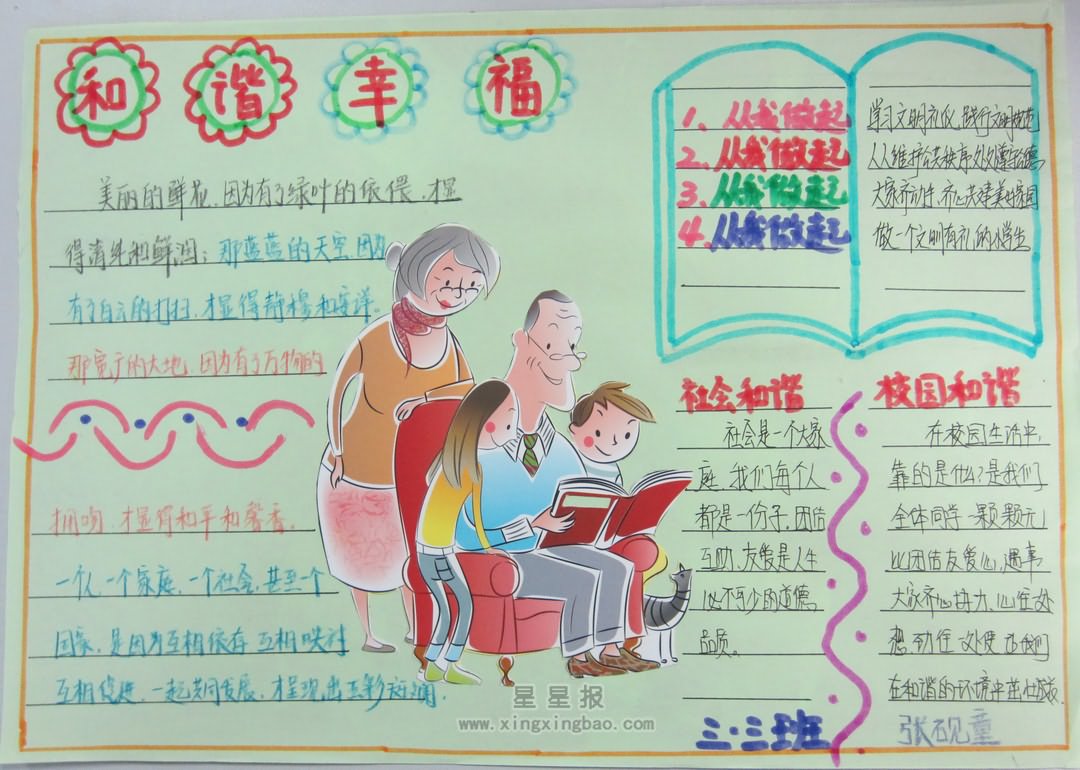 和谐幸福
美丽的鲜花,因为有了绿叶的依偎,才显
得清纯和鲜润;那蓝蓝的天空,因为
有了白云的打扫,才显得静穆和安详。
那宽广的大地,因为有了万物的
拥吻,才显得和平和馨香。
一个人,一个家庭,一个社会,甚至一个
国家,是因为互相依存 互相映衬
互相促进,一起共同发展,才呈现出五彩斑斓.
1、从我做起
2、从我做起
3、从我做起
4、从我做起
学习文明礼仪,践行文明规范
人人维护公共秩序处处遵守公德,
大家齐动手,齐心共建美好家园
做一个文明有礼的小学生
社会和谐
社会是一个大家
庭,我们每个人
都是一份子,团结
互助,友爱是人生
必不可少的道德
品质。
校园和谐
在校园生活中,
靠的是什么?是我们
全体同学一颗颗元
比团结友爱心,遇事
大家齐心协力,心往一处
想,劲往一处使,在我们
在和谐的环境中茁壮成长.
三·三班
张砚童
星星报
www.xingxingbao.com